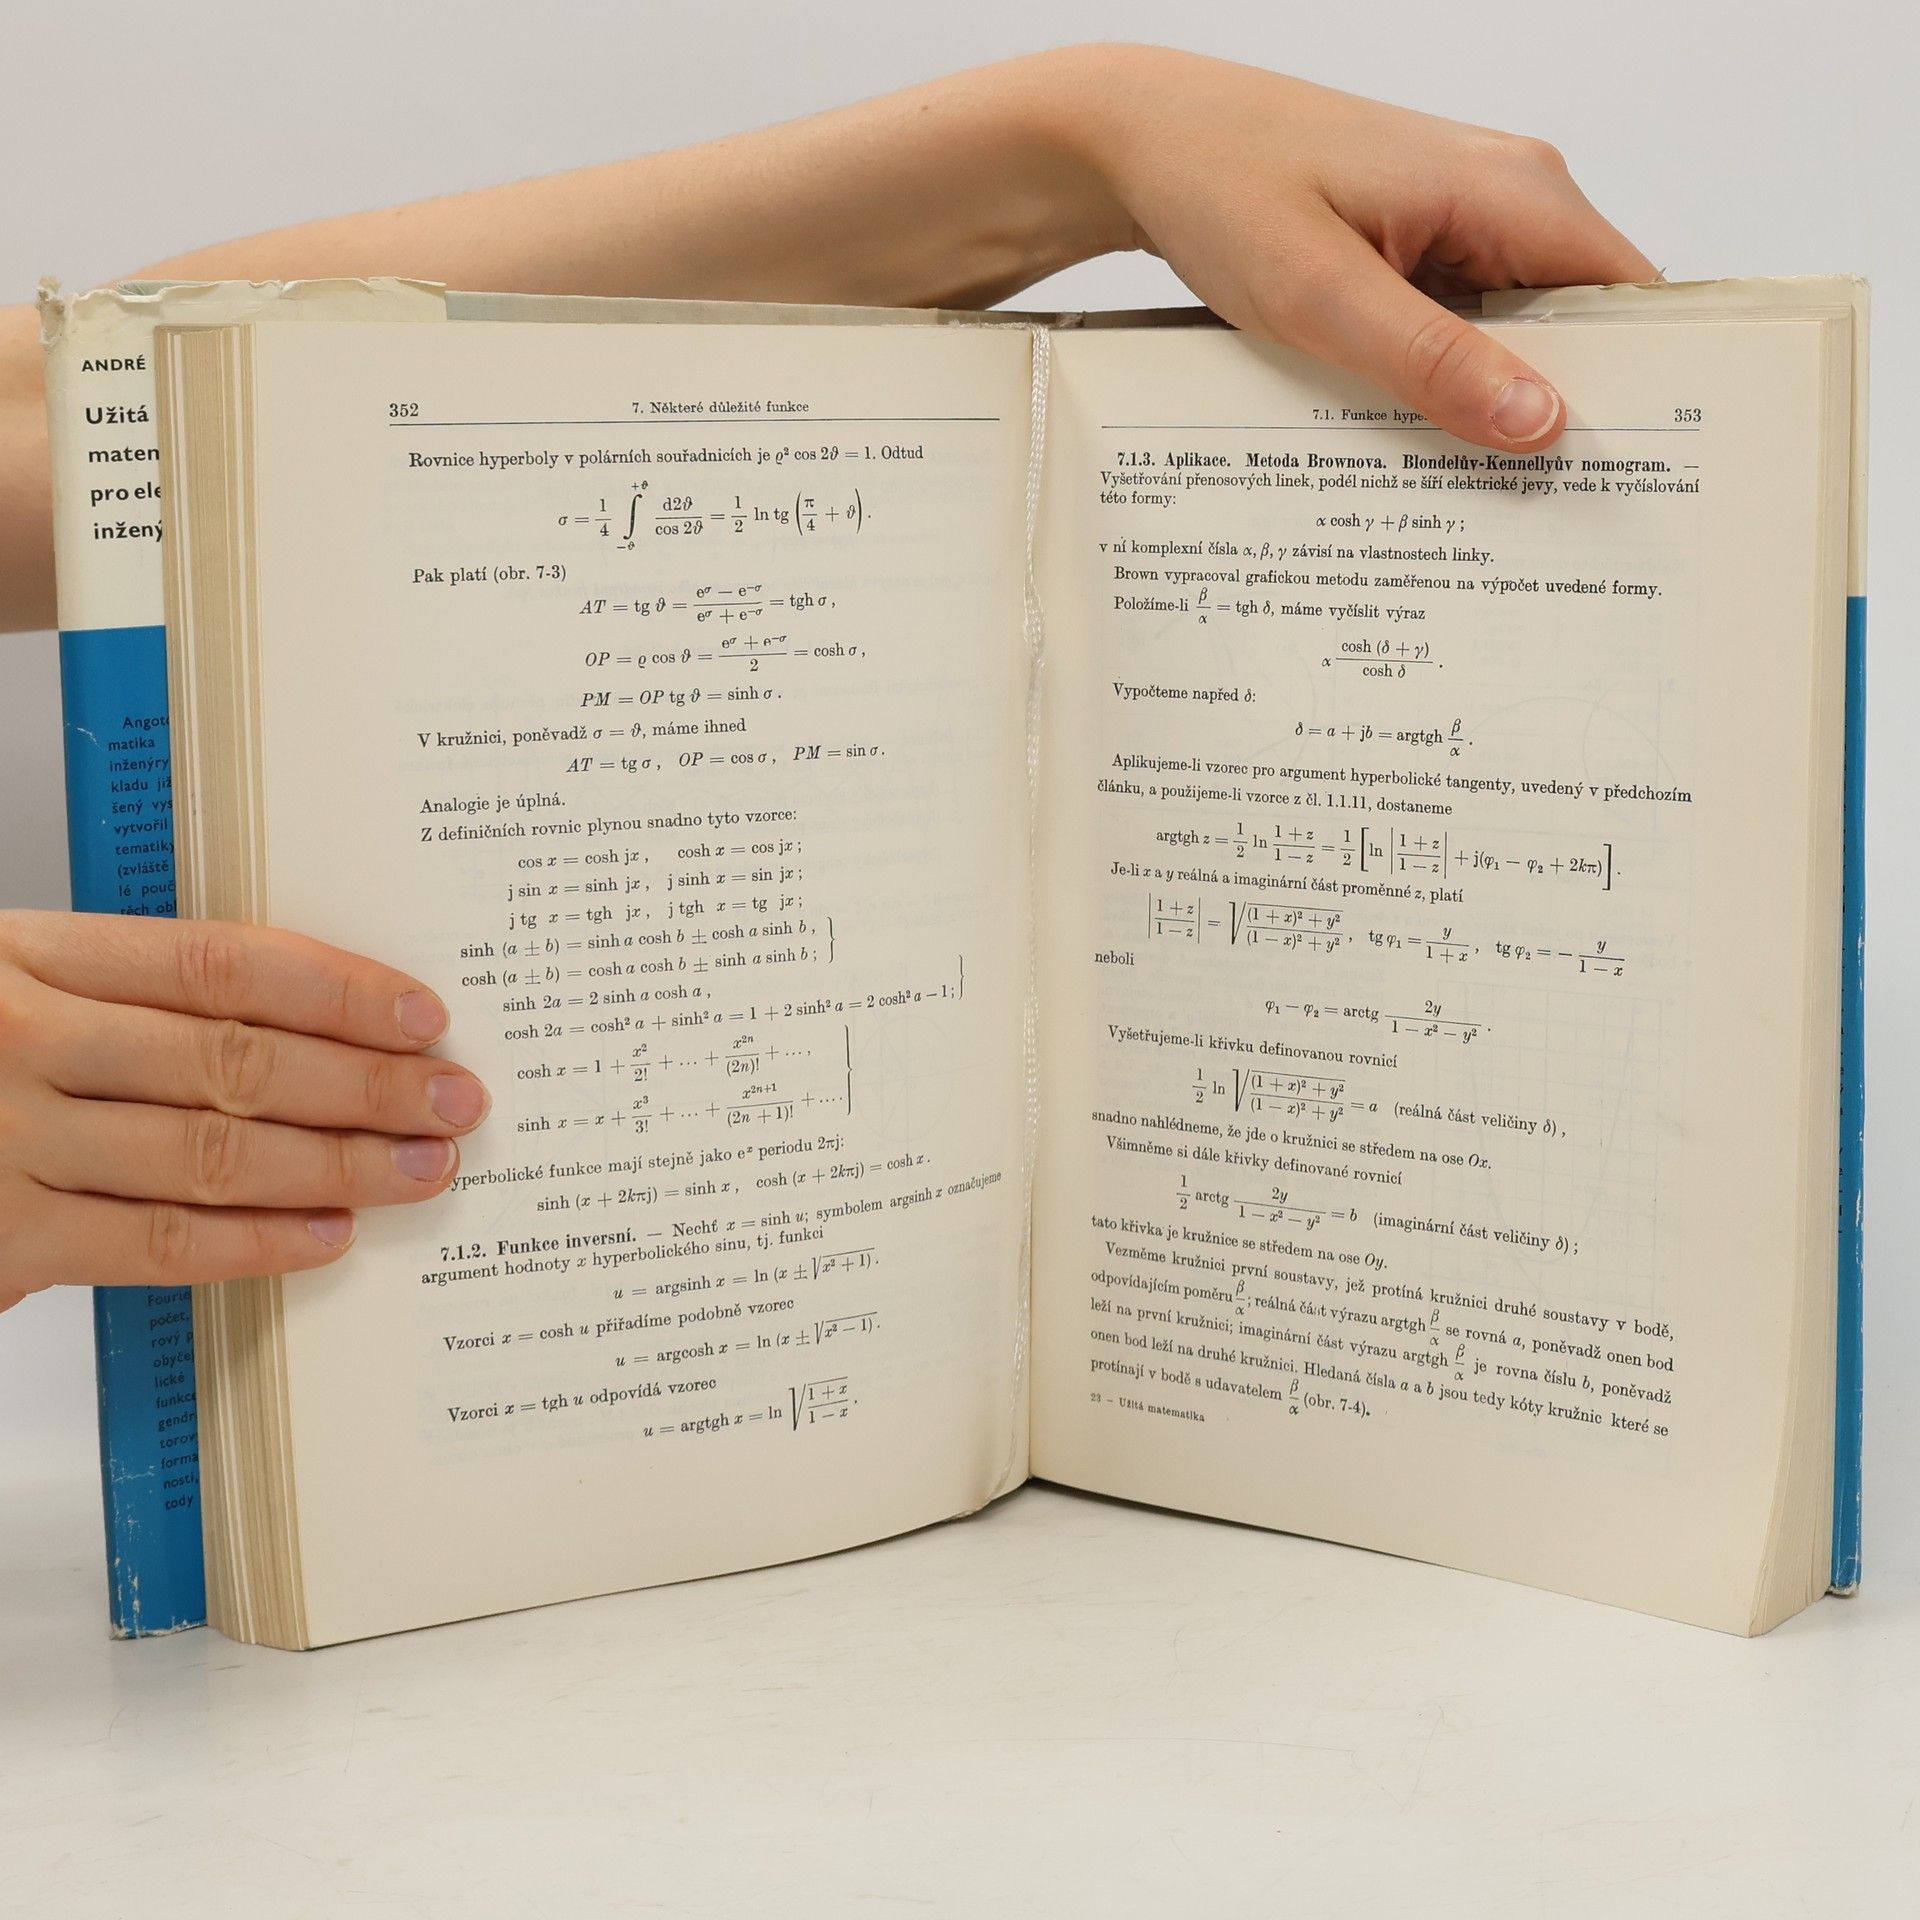 ANDRÉ
Užitá
matem
pro ele
inžený
Angot
matika
inženýry
kladu již
šený vys
vytvořil
tematiky
(zvláště
lé pouč
těch obl
Fourie
počet,
rový p
obyčej
lické
funkce
gendr
torov
forma
nosti,
tody
352 7. Některé důležité funkce
Rovnice hyperboly v polárních souřadnicích je ϱ² cos 2ϑ = 1. Odtud
σ = 1/4 ∫_{−ϑ}^{+ϑ} d2ϑ/cos 2ϑ = 1/2 ln tg (π/4 + ϑ).
Pak platí (obr. 7-3)
AT = tg ϑ = (e^σ − e^{−σ})/(e^σ + e^{−σ}) = tgh σ,
OP = ϱ cos ϑ = (e^σ + e^{−σ})/2 = cosh σ,
PM = OP tg ϑ = sinh σ.
V kružnici, poněvadž σ = ϑ, máme ihned
AT = tg σ, OP = cos σ, PM = sin σ.
Analogie je úplná.
Z definičních rovnic plynou snadno tyto vzorce:
cos x = cosh jx, cosh x = cos jx;
j sin x = sinh jx, j sinh x = sin jx;
j tg x = tgh jx, j tgh x = tg jx;
sinh (a ± b) = sinh a cosh b ± cosh a sinh b,
cosh (a ± b) = cosh a cosh b ± sinh a sinh b;
sinh 2a = 2 sinh a cosh a,
cosh 2a = cosh² a + sinh² a = 1 + 2 sinh² a = 2 cosh² a − 1;
cosh x = 1 + x²/2! + ... + x^{2n}/(2n)! + ...,
sinh x = x + x³/3! + ... + x^{2n+1}/(2n + 1)! + ....
yperbolické funkce mají stejně jako e^x periodu 2πj:
sinh (x + 2kπj) = sinh x, cosh (x + 2kπj) = cosh x.
7.1.2. Funkce inversní. — Nechť x = sinh u; symbolem argsinh x označujeme
argument hodnoty x hyperbolického sinu, tj. funkci
u = argsinh x = ln (x ± √(x² + 1)).
Vzorci x = cosh u přiřadíme podobně vzorec
u = argcosh x = ln (x ± √(x² − 1)).
Vzorci x = tgh u odpovídá vzorec
u = argtgh x = ln √((1 + x)/(1 − x)).
7.1. Funkce hype 353
7.1.3. Aplikace. Metoda Brownova. Blondelův-Kennellyův nomogram. —
Vyšetřování přenosových linek, podél nichž se šíří elektrické jevy, vede k vyčíslování
této formy:
α cosh γ + β sinh γ;
v ní komplexní čísla α, β, γ závisí na vlastnostech linky.
Brown vypracoval grafickou metodu zaměřenou na výpočet uvedené formy.
Položíme-li β/α = tgh δ, máme vyčíslit výraz
α cosh (δ + γ)/cosh δ.
Vypočteme napřed δ:
δ = a + jb = argtgh β/α.
Aplikujeme-li vzorec pro argument hyperbolické tangenty, uvedený v předchozím
článku, a použijeme-li vzorce z čl. 1.1.11, dostaneme
argtgh z = 1/2 ln (1 + z)/(1 − z) = 1/2 [ln |(1 + z)/(1 − z)| + j(φ₁ − φ₂ + 2kπ)].
Je-li x a y reálná a imaginární část proměnné z, platí
|(1 + z)/(1 − z)| = √(((1 + x)² + y²)/((1 − x)² + y²)), tg φ₁ = y/(1 + x), tg φ₂ = − y/(1 − x)
neboli
φ₁ − φ₂ = arctg 2y/(1 − x² − y²).
Vyšetřujeme-li křivku definovanou rovnicí
1/2 ln √(((1 + x)² + y²)/((1 − x)² + y²)) = a (reálná část veličiny δ),
snadno nahlédneme, že jde o kružnici se středem na ose Ox.
Všimněme si dále křivky definované rovnicí
1/2 arctg 2y/(1 − x² − y²) = b (imaginární část veličiny δ);
tato křivka je kružnice se středem na ose Oy.
Vezměme kružnici první soustavy, jež protíná kružnici druhé soustavy v bodě,
odpovídajícím poměru β/α; reálná část výrazu argtgh β/α se rovná a, poněvadž onen bod
leží na první kružnici; imaginární část výrazu argtgh β/α je rovna číslu b, poněvadž
onen bod leží na druhé kružnici. Hledaná čísla a a b jsou tedy kóty kružnic které se
protínají v bodě s udavatelem β/α (obr. 7-4).
23 – Užitá matematika